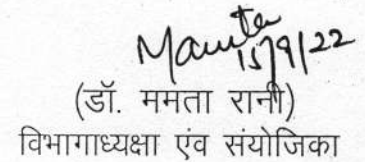 Mamta
15/9/22
(डॉ. ममता रानी)
विभागाध्यक्षा एंव संयोजिका